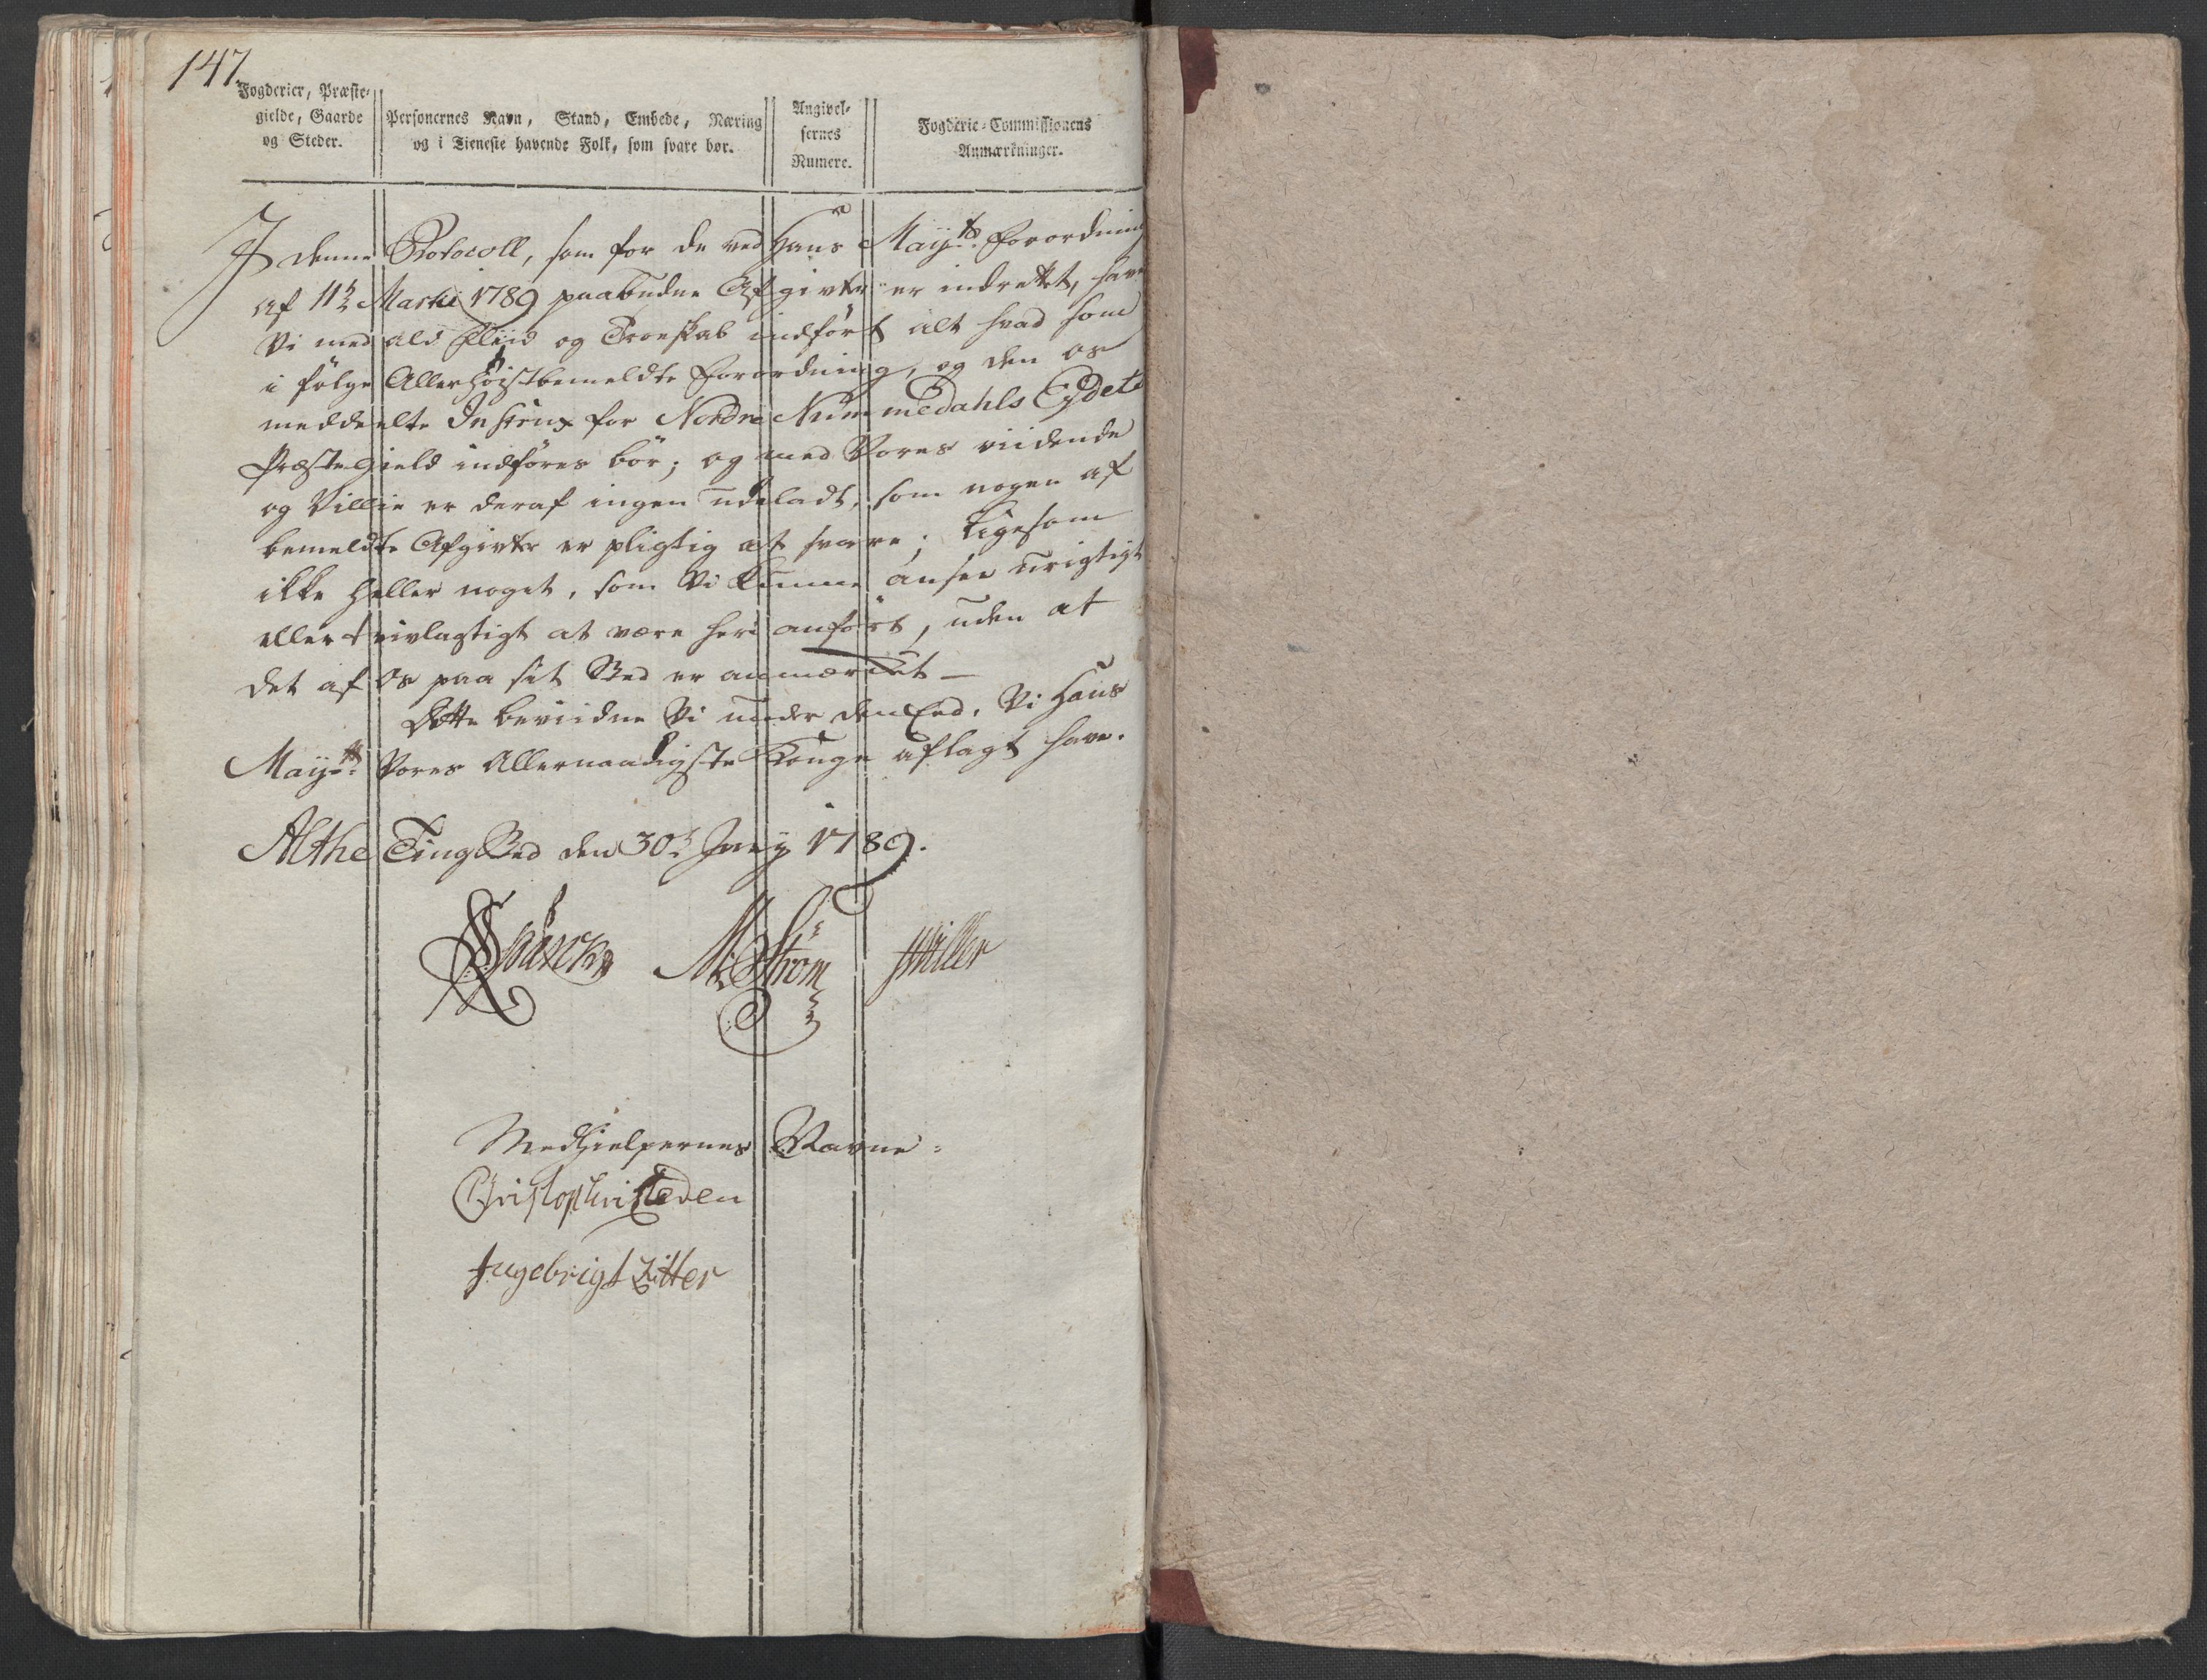 147.
Fogderier, Præste-
gielde, Gaarde
og Steder.
Personernes Navn, Stand, Embede, Næring
og i Tieneste havende Folk, som svare bør.
Angivel-
sernes
Numere.
Fogderie-Commissionens
Anmærkninger.
I denne Protocoll, som for de ved Hans May:ts Forordning
af 11te Martii 1789 paabudne Afgivter er indrettet, have
Vi med ald Fliid og Troeskab indført alt hvad som
i følge Allerhøistbemeldte Forordning, og den os
meddeelte Instrux for Nordre Nummedahls Eydets
Præstegield indføres bør; og med Vores viidende
og Villie er deraf ingen udeladt, som nogen af
bemeldte Afgivter er pligtig at svare; Ligesom
ikke heller noget, som Vi kunne ansee urigtigt
eller tvivlagtigt at være heri anført, uden at
det af Os paa sit Sted er anmærket —
Dette bevidne Vi under den Eed, Vi Hans
May:ts Vores Allernaadigste Konge aflagt have.
Althe TingSted den 30te Juny 1789.
MStrøm Miller
Medhielpernes Navne:
Ingebrigt Zitter